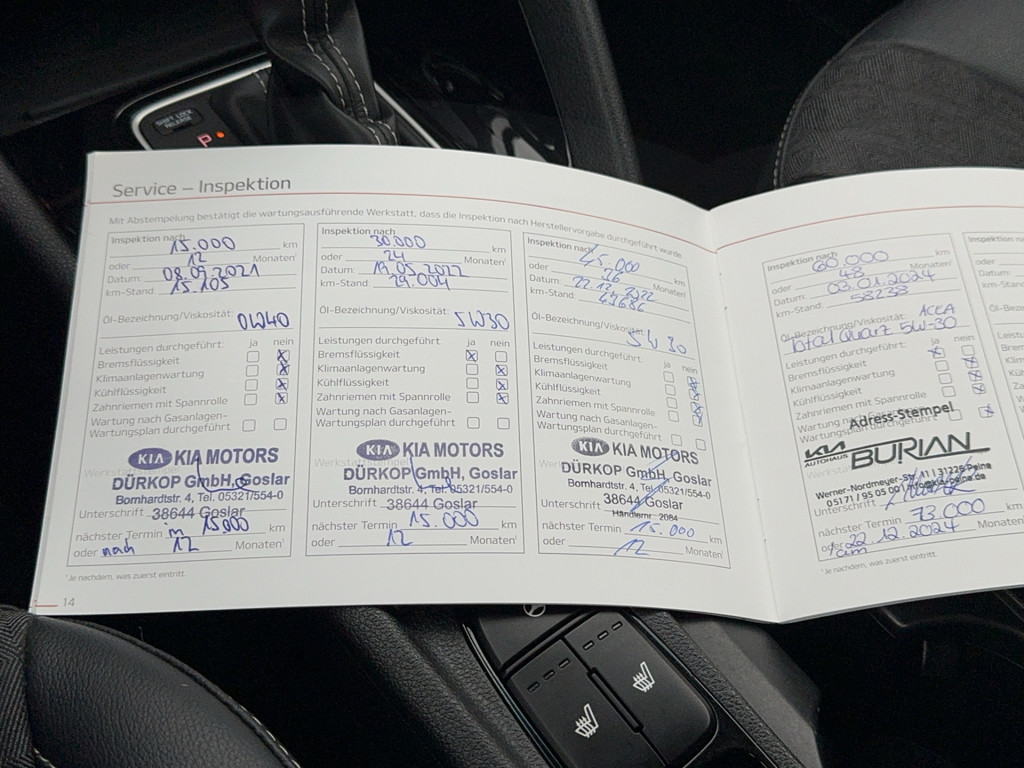 SHIFT LOCK
RELEASE
P
Service – Inspektion
Mit Abstempelung bestätigt die wartungsausführende Werkstatt, dass die Inspektion nach Herstellervorgabe durchgeführt wurde
Inspektion nach 15.000 km
oder 12 Monaten¹
Datum: 08.09.2021
km-Stand: 15.105
Öl-Bezeichnung/Viskosität:
0W40
Leistungen durchgeführt: ja nein
Bremsflüssigkeit
Klimaanlagenwartung
Kühlflüssigkeit
Zahnriemen mit Spannrolle
Wartung nach Gasanlagen-
Wartungsplan durchgeführt
KIA KIA MOTORS
DÜRKOP GmbH, Goslar
Bornhardtstr. 4, Tel. 05321/554-0
Unterschrift 38644 Goslar
nächster Termin in 15000 km
oder nach 12 Monaten¹
¹Je nachdem, was zuerst eintritt.
14
Inspektion nach 30.000 km
oder 24 Monaten¹
Datum: 19.05.2022
km-Stand: 29.004
Öl-Bezeichnung/Viskosität:
5W30
Leistungen durchgeführt: ja nein
Bremsflüssigkeit
Klimaanlagenwartung
Kühlflüssigkeit
Zahnriemen mit Spannrolle
Wartung nach Gasanlagen-
Wartungsplan durchgeführt
KIA KIA MOTORS
DÜRKOP GmbH, Goslar
Bornhardtstr. 4, Tel. 05321/554-0
Unterschrift 38644 Goslar
nächster Termin 15.000 km
oder 12 Monaten¹
Inspektion nach 45.000 km
oder 36 Monaten¹
Datum: 22.12.2022
km-Stand: 44686
Öl-Bezeichnung/Viskosität:
5W30
Leistungen durchgeführt: ja nein
Bremsflüssigkeit
Klimaanlagenwartung
Kühlflüssigkeit
Zahnriemen mit Spannrolle
Wartung nach Gasanlagen-
Wartungsplan durchgeführt
KIA KIA MOTORS
DÜRKOP GmbH, Goslar
Bornhardtstr. 4, Tel. 05321/554-0
38644 Goslar
Unterschrift Händlernr. 2084
nächster Termin 15.000 km
oder 12 Monaten¹
Inspektion nach 60.000 km
oder 48 Monaten¹
Datum: 03.01.2024
km-Stand: 58238
Öl-Bezeichnung/Viskosität: ACEA
Total Quarz 5W-30
Leistungen durchgeführt: ja nein
Bremsflüssigkeit
Klimaanlagenwartung
Kühlflüssigkeit
Zahnriemen mit Spannrolle
Adress-Stempel
KIA
AUTOHAUS BURIAN
Werner-Nordmeyer-Str. 11 | 31226 Peine
Unterschrift
nächster Termin 73.000 km
oder am 22.12.2024 Monaten¹
¹Je nachdem, was zuerst eintritt.